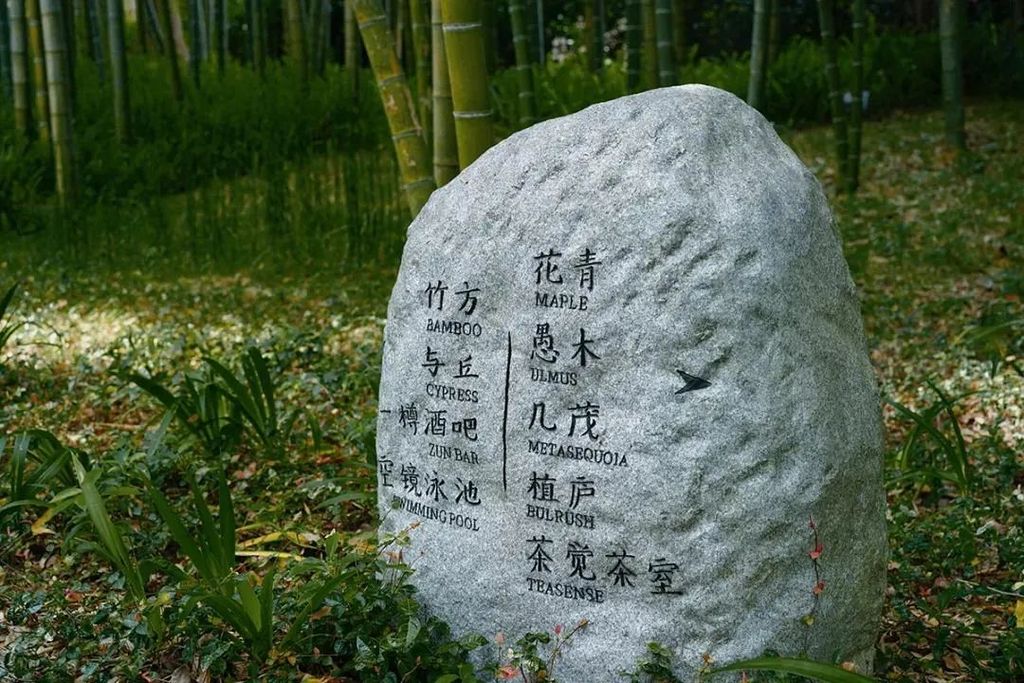 竹方
BAMBOO
与丘
CYPRESS
一樽酒吧
ZUN BAR
空镜泳池
SWIMMING POOL
花青
MAPLE
愚木
ULMUS
几茂
METASEQUOIA
植庐
BULRUSH
茶觉茶室
TEASENSE